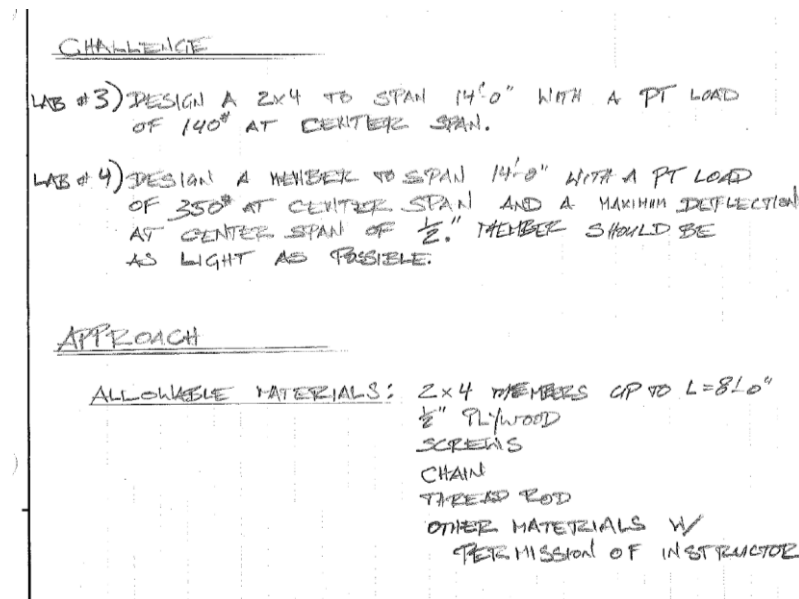 CHALLENGE
LAB #3) DESIGN A 2x4 TO SPAN 14'-0" WITH A PT LOAD
OF 140# AT CENTER SPAN.
LAB #4) DESIGN A MEMBER TO SPAN 14'-0" WITH A PT LOAD
OF 350# AT CENTER SPAN AND A MAXIMUM DEFLECTION
AT CENTER SPAN OF 1/2." MEMBER SHOULD BE
AS LIGHT AS POSSIBLE.
APPROACH
ALLOWABLE MATERIALS: 2x4 MEMBERS UP TO L=8'-0"
1/2" PLYWOOD
SCREWS
CHAIN
THREAD ROD
OTHER MATERIALS W/
PERMISSION OF INSTRUCTOR